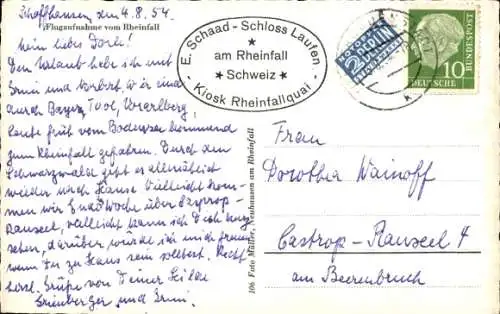 Schaffhausen, den 4.8.54.
Flugaufnahme vom Rheinfall
Mein liebes Dorle!
Den Urlaub habe ich mit
Erni und Norbert. Wir sind
durch Bayern, Tirol, Vorarlberg,
heute früh vom Bodensee kommend
zum Rheinfall gefahren. Durch den
Schwarzwald geht es allmählich
wieder nach Hause. Vielleicht kom-
men wir Ende Woche über Castrop-
Rauxel, vielleicht kann ich Dich kurz
sehen, darüber würde ich mich freuen
wenn Du zu Haus sein solltest. Recht
herzl. Grüße von Deiner Hilde
Grienberger und Erni.
E. Schaad - Schloss Laufen
am Rheinfall
Schweiz
Kiosk Rheinfallquai
NOTOPFER
2 BERLIN
STEUERMARKE
DEUTSCHE
BUNDESPOST
10
106 Foto Müller, Neuhausen am Rheinfall
Frau
Dorothea Wainoff
Castrop-Rauxel 4
am Beerenbruch